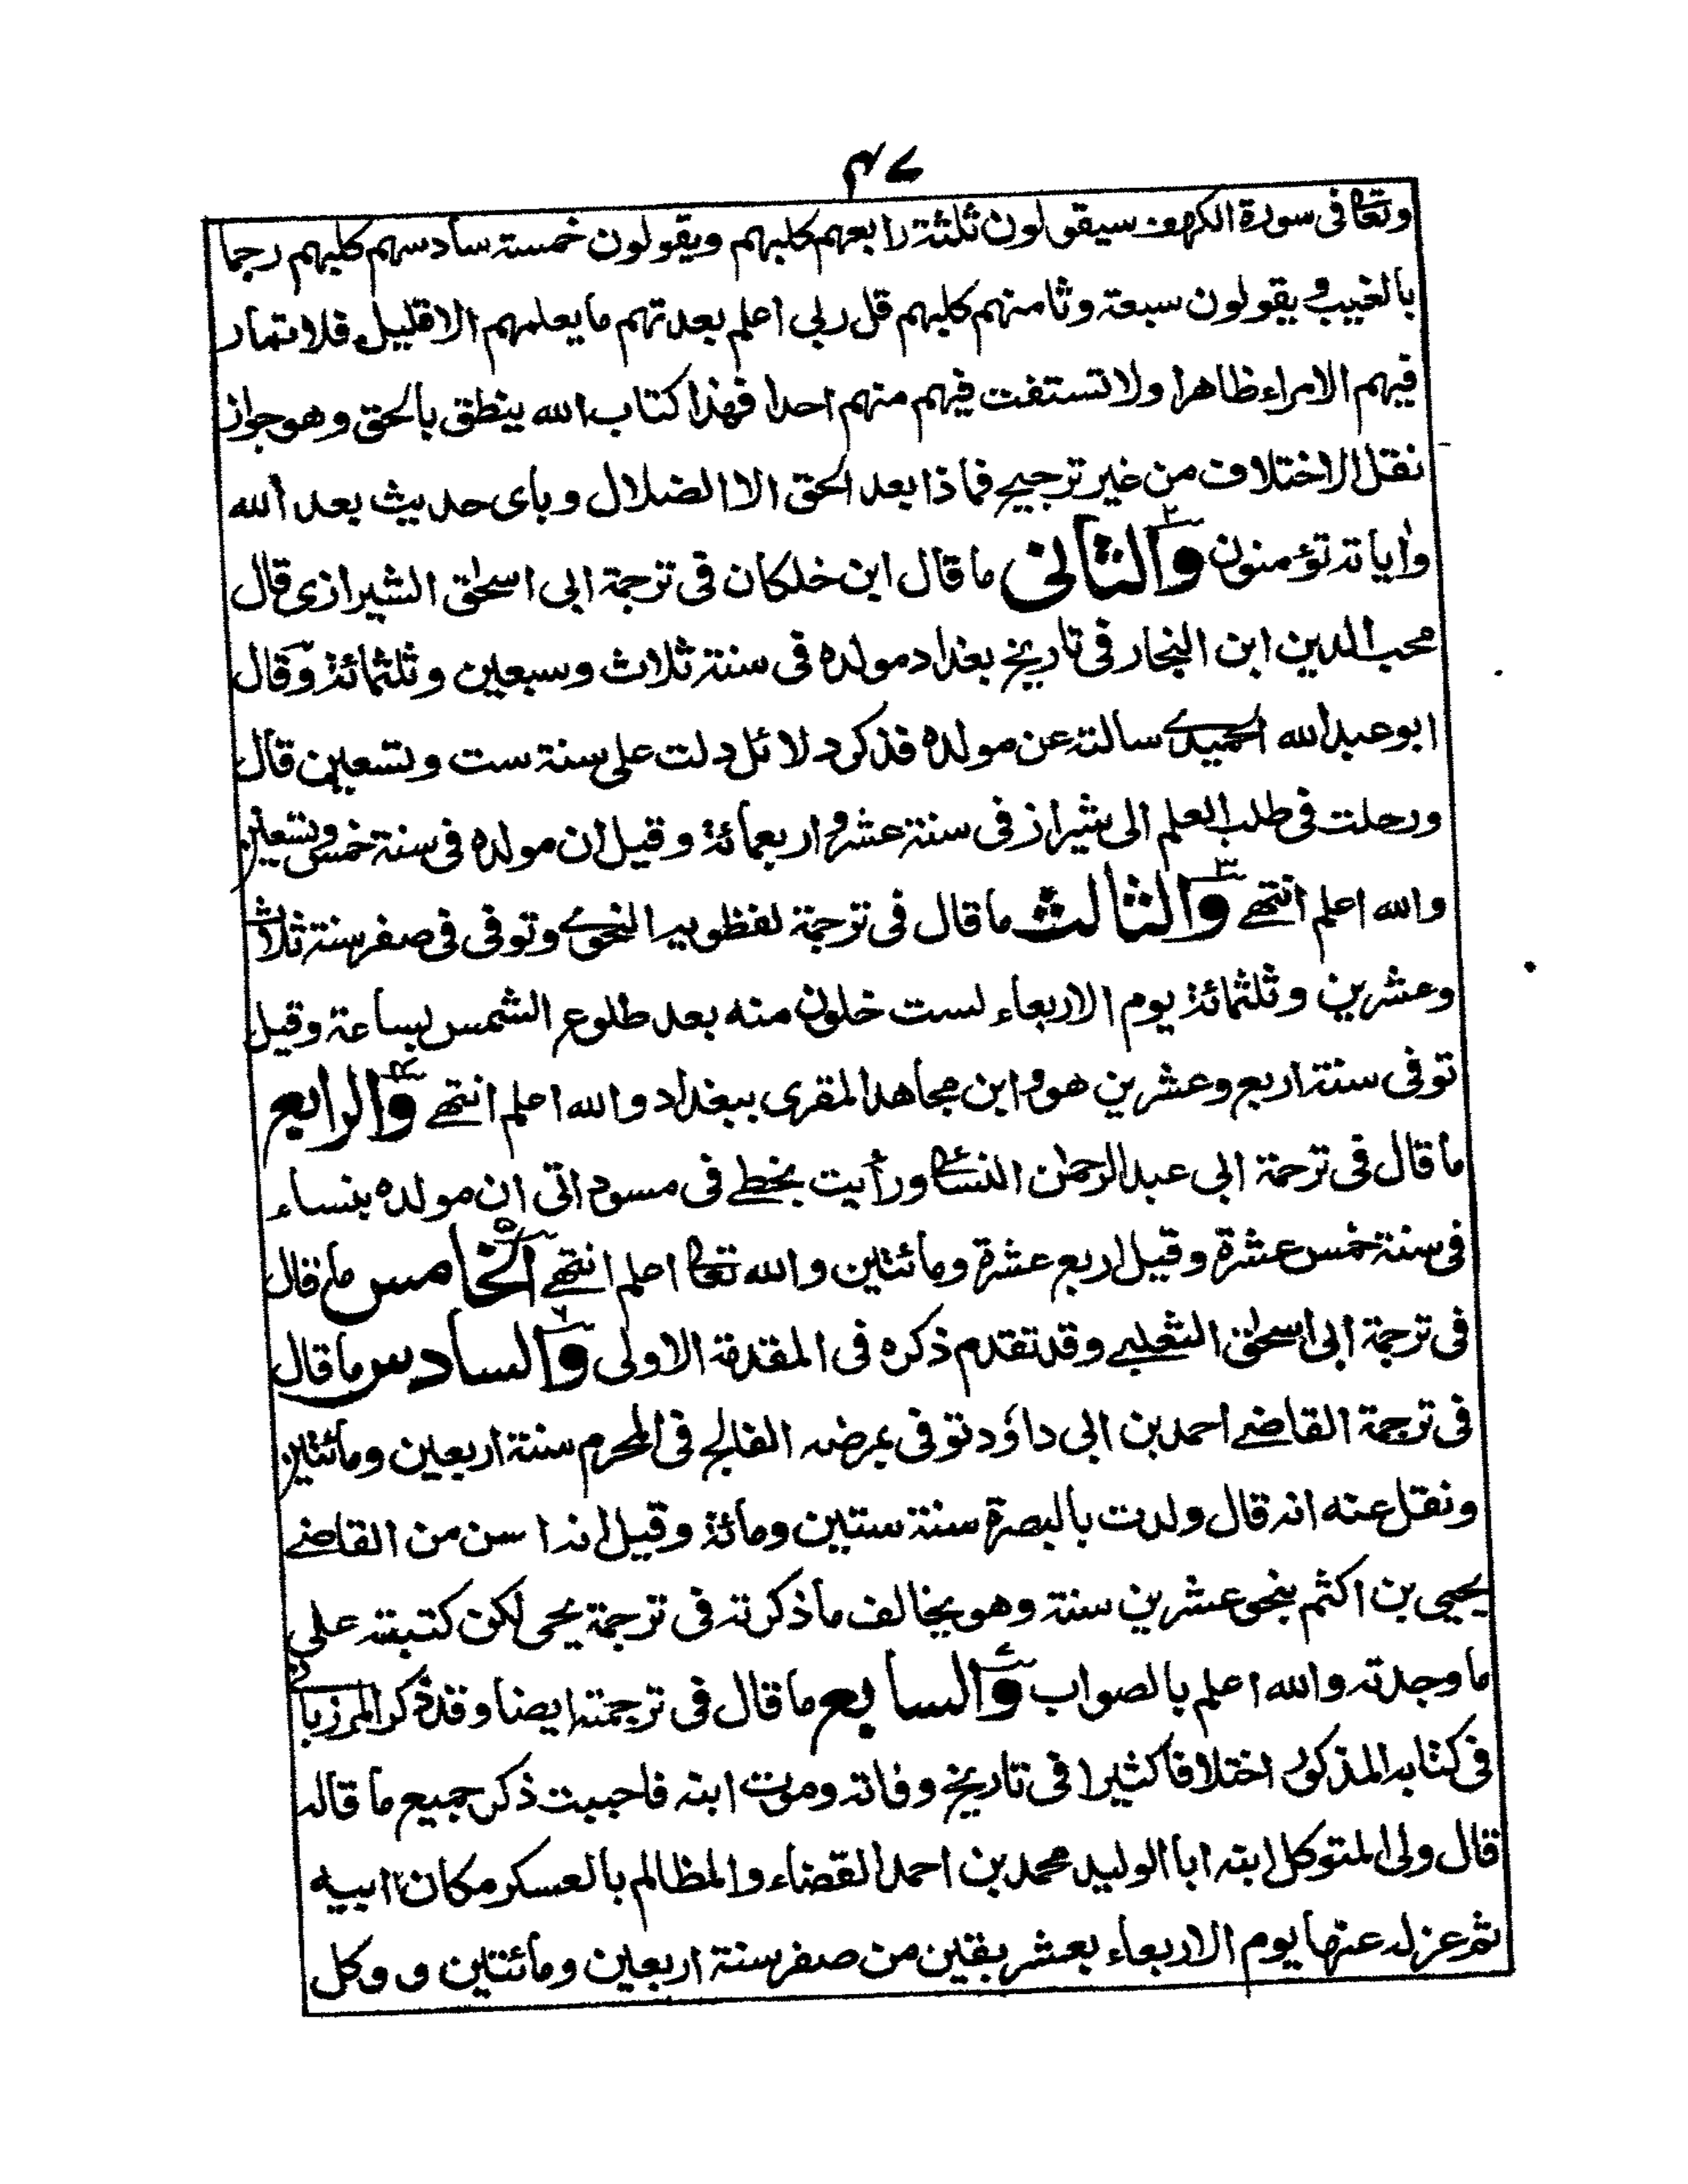 ۴۷
وتعالی فی سورة الکهف سیقولون ثلثة رابعهم کلبهم ویقولون خمسة سادسهم کلبهم رجما
بالغیب ویقولون سبعة وثامنهم کلبهم قل ربی اعلم بعدتهم ما یعلمهم الا قلیل فلا تمار
فیهم الا مراء ظاهرا ولا تستفت فیهم منهم احدا فهذا کتاب الله ینطق بالحق وهو جواز
نقل الاختلاف من غیر ترجیح فماذا بعد الحق الا الضلال وبای حدیث بعد الله
واٰیاته تؤمنون والثانی ۲ ما قال ابن خلکان فی ترجمة ابی اسحٰق الشیرازی قال
محب الدین ابن النجار فی تاریخ بغداد مولده فی سنة ثلاث وسبعین وثلثمائة وقال
ابو عبد الله الحمیدے سالته عن مولده فذکر دلائل دلت علی سنة ست وتسعین قال
ورحلت فی طلب العلم الی شیراز فی سنة عشر واربعمائة وقیل ان مولده فی سنة خمس وتسعین
والله اعلم انتهے والثالث ۳ ما قال فی ترجمة نفظویه النحوے وتوفی فی صفر سنة ثلاث
وعشرین وثلثمائة یوم الاربعاء لست خلون منه بعد طلوع الشمس بساعة وقیل
توفی سنة اربع وعشرین هو وابن مجاهد المقری ببغداد والله اعلم انتهے والرابع ۴
ما قال فی ترجمة ابی عبد الرحمٰن النسائی ورأیت بخطے فی مسوداتی ان مولده بنساء
فی سنة خمس عشرة وقیل اربع عشرة ومائتین والله تعالی اعلم انتهے الخامس ۵ ما قال
فی ترجمة ابی اسحٰق الثعلبے وقد تقدم ذکره فی المقدمة الاولی والسادس ۶ ما قال
فی ترجمة القاضے احمد بن ابی داؤد توفی بمرضه الفالج فی المحرم سنة اربعین ومائتین
ونقل عنه انه قال ولدت بالبصرة سنة ستین ومائة وقیل انه اسن من القاضے
یحیی بن اکثم بنحو عشرین سنة وهو یخالف ما ذکرته فی ترجمة یحی لکن کتبته علی
ما وجدته والله اعلم بالصواب والسابع ۷ ما قال فی ترجمته ایضا وقد ذکر المرزبانی
فی کتابه المذکور اختلافا کثیرا فی تاریخ وفاته وموت ابنه فاحببت ذکر جمیع ما قاله
قال ولی المتوکل ابنه ابا الولید محمد بن احمد القضاء والمظالم بالعسکر مکان ابیه
ثم عزله عنها یوم الاربعاء بعشر بقین من صفر سنة اربعین ومائتین و وکل